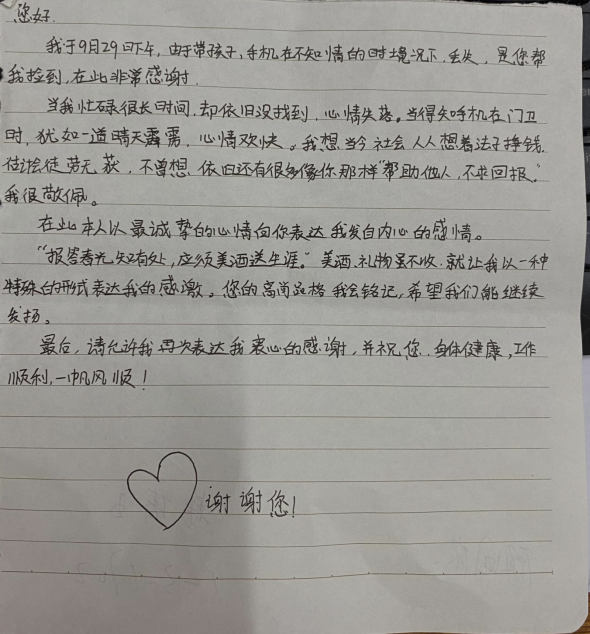 您好.
我于9月29日下午,由于带孩子,手机在不知情的时境况下,丢失,是您帮
我捡到,在此非常感谢.
当我忙碌很长时间,却依旧没找到,心情失落。当得知手机在门卫
时,犹如一道晴天霹雳,心情欢快。我想,当今社会人人想着法子挣钱,
徒劳无获,不曾想,依旧还有很多像你那样“帮助他人,不求回报。”
我很敬佩。
在此本人以最诚挚的心情向你表达我发自内心的感情。
“报答春光知有处,应须美酒送生涯。”美酒.礼物虽不收.就让我以一种
特殊的形式表达我的感激。您的高尚品格我会铭记,希望我们能继续
发扬。
最后,请允许我再次表达我衷心的感谢,并祝您.身体健康,工作
顺利,一帆风顺!
谢谢您!